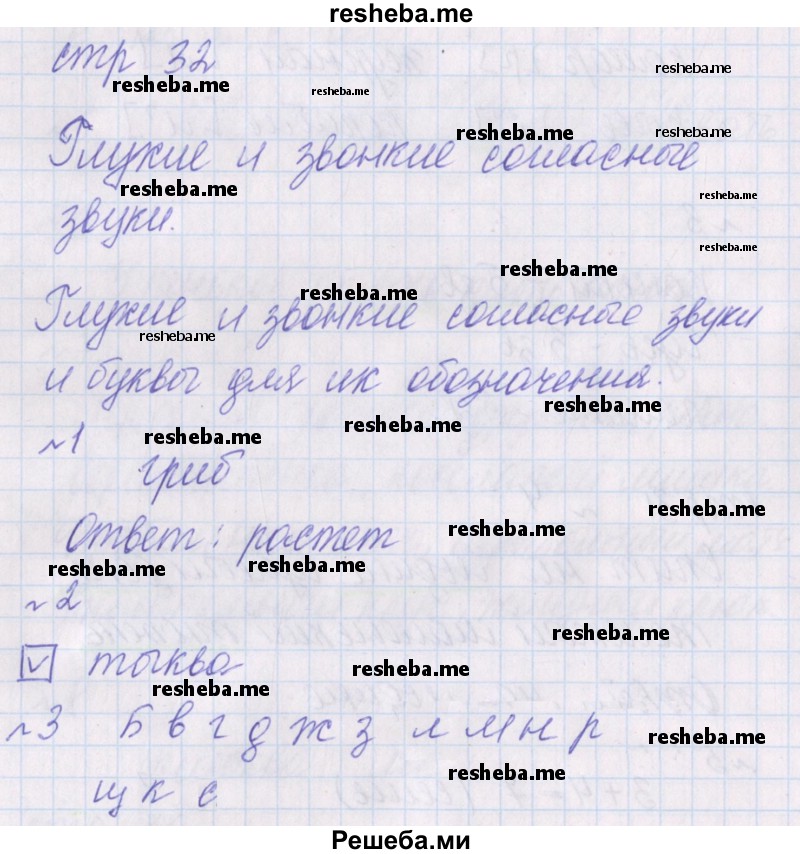 resheba.me
стр 32
resheba.me
resheba.me
resheba.me
Глухие и звонкие согласные
resheba.me
resheba.me
resheba.me
resheba.me
звуки.
resheba.me
resheba.me
resheba.me
Глухие и звонкие согласные звуки
resheba.me
и буквы для их обозначения.
resheba.me
resheba.me
~1
resheba.me
гриб
resheba.me
Ответ: растет
resheba.me
resheba.me
resheba.me
~2
resheba.me
тыква
resheba.me
resheba.me
~3 Б в г д ж з л м н р
resheba.me
щ к с
resheba.me
Решеба.ми